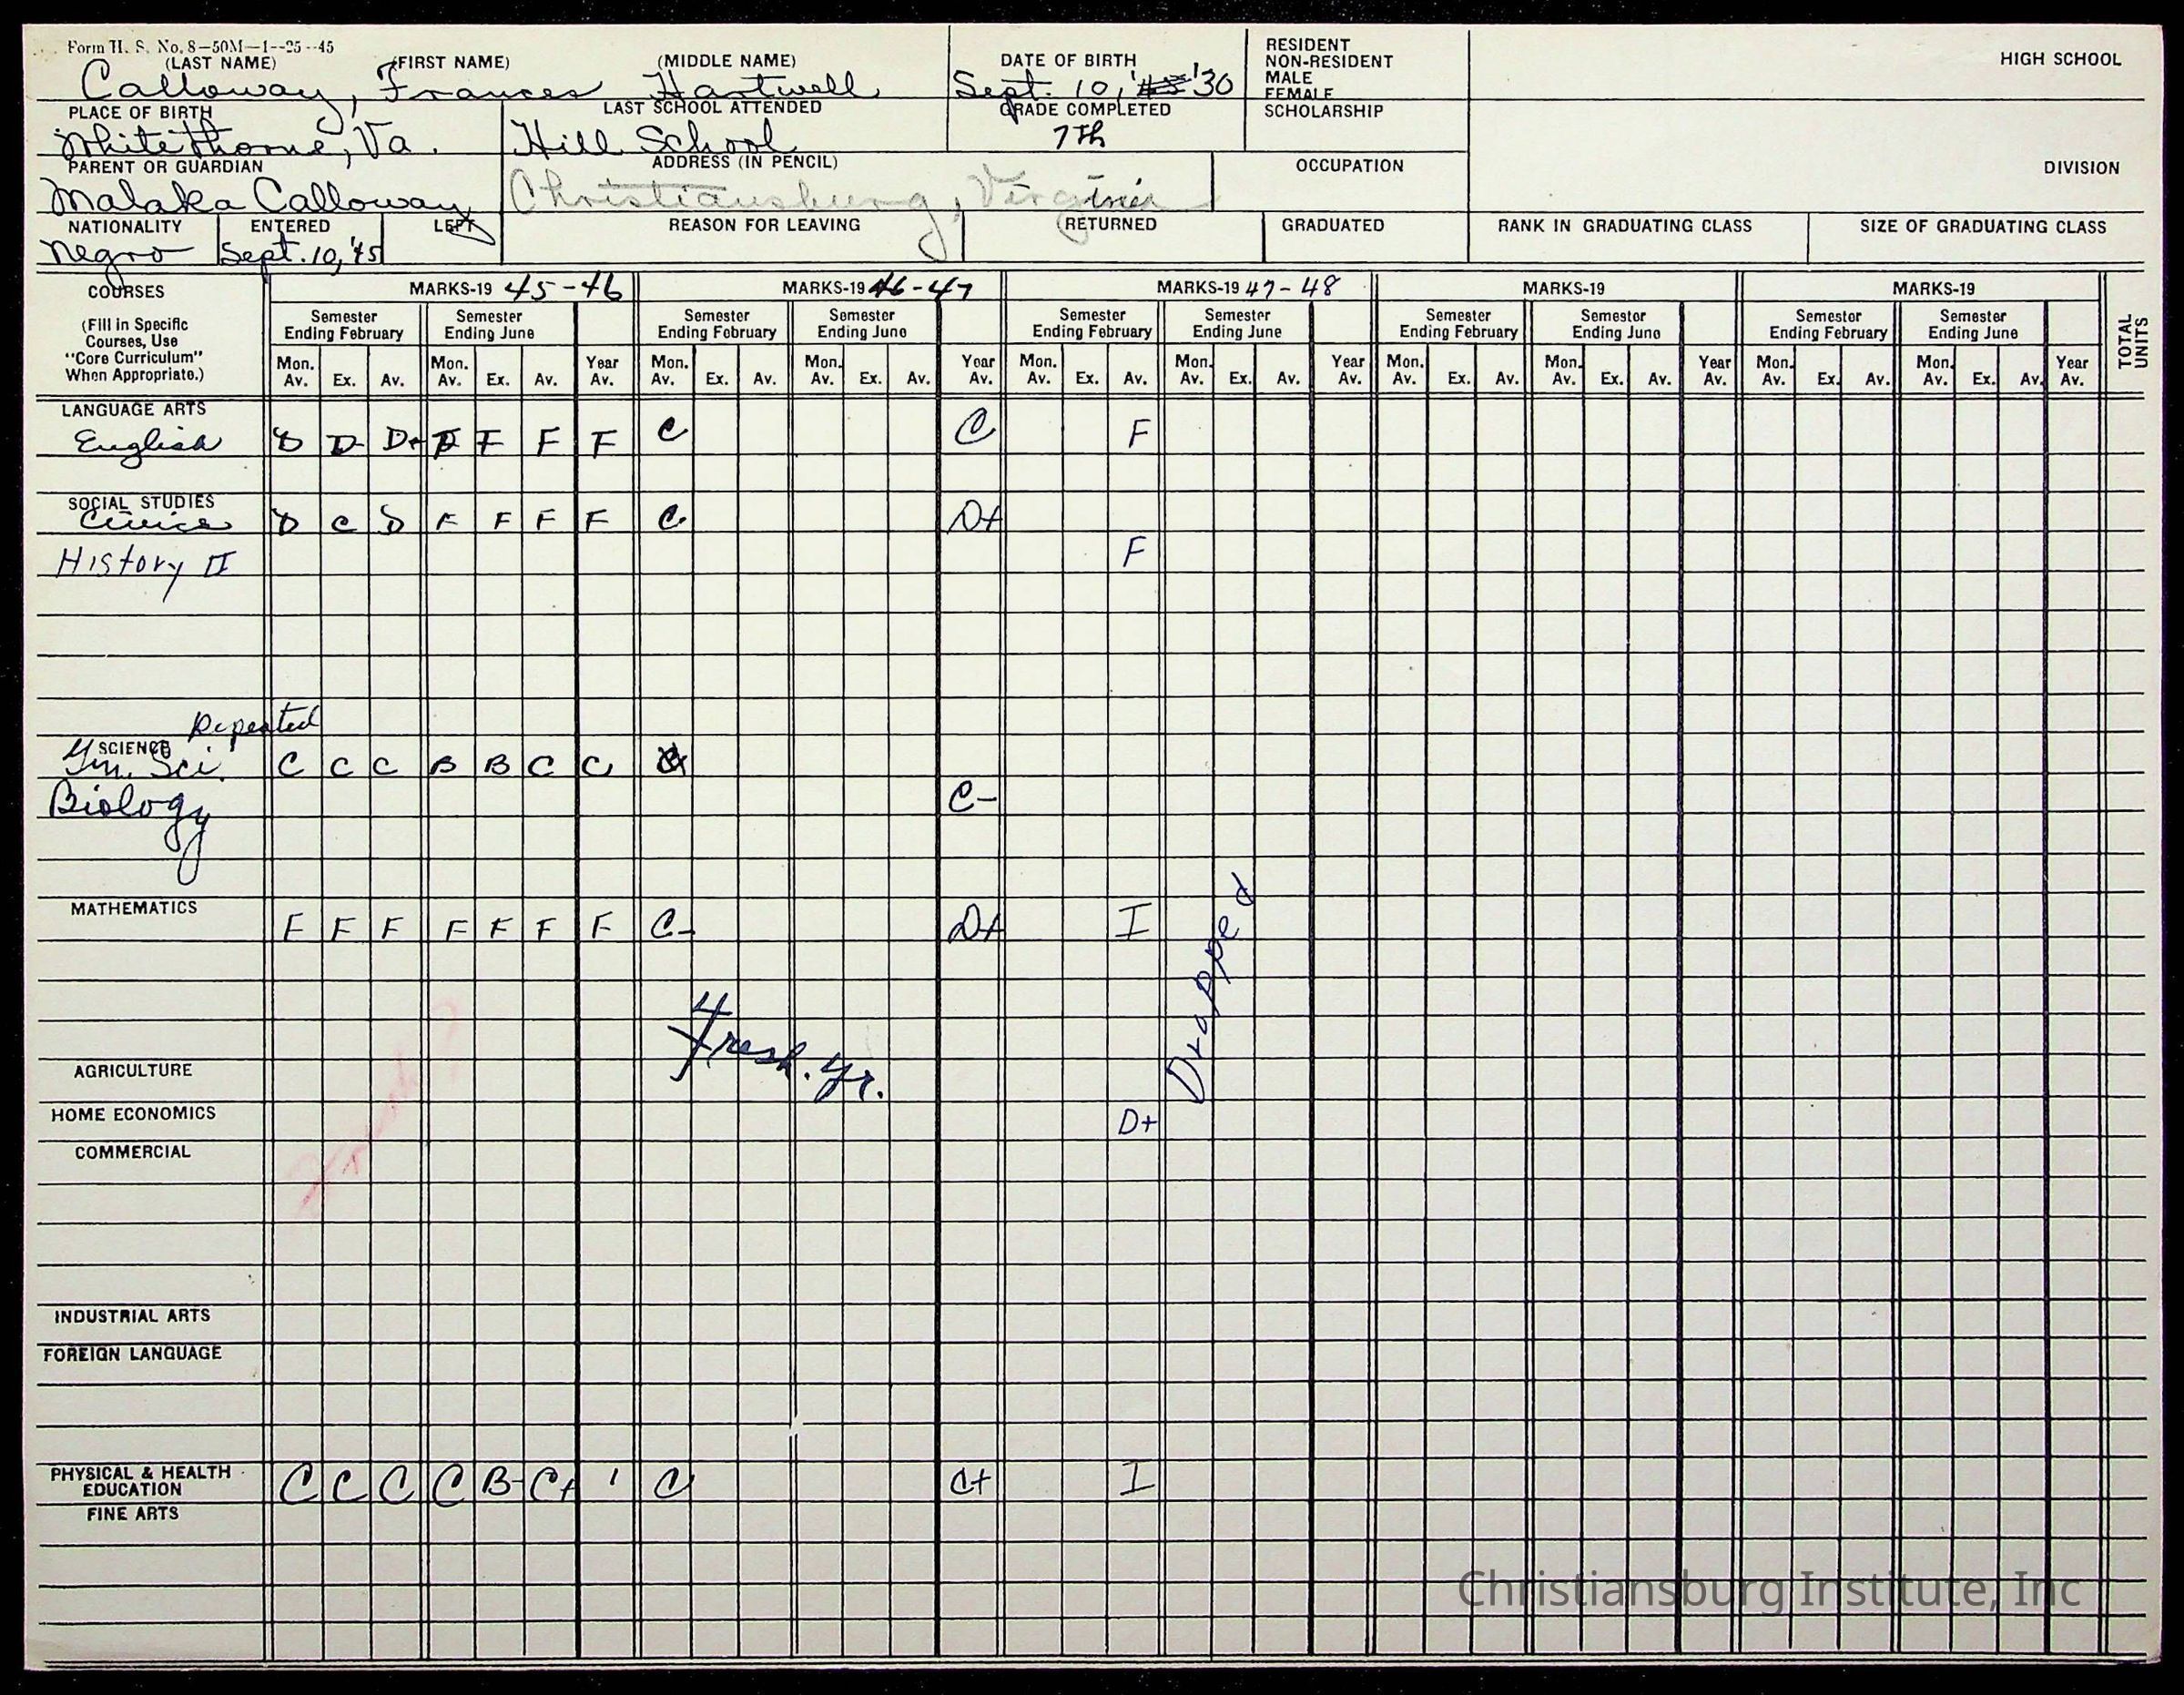 Form H. S. No. 8—50M—1--25--45
(LAST NAME) (FIRST NAME) (MIDDLE NAME) DATE OF BIRTH
Calloway, Frances Hartwell Sept. 10, '30
RESIDENT
NON-RESIDENT
MALE
FEMALE
HIGH SCHOOL
PLACE OF BIRTH LAST SCHOOL ATTENDED GRADE COMPLETED SCHOLARSHIP
Whitethorne, Va. Hill School 7th
PARENT OR GUARDIAN ADDRESS (IN PENCIL) OCCUPATION DIVISION
Malaka Calloway Christiansburg, Virginia
NATIONALITY ENTERED LEFT REASON FOR LEAVING RETURNED GRADUATED RANK IN GRADUATING CLASS SIZE OF GRADUATING CLASS
Negro Sept. 10, '45
COURSES MARKS-19 45-46 MARKS-19 46-47 MARKS-19 47-48 MARKS-19 MARKS-19
(Fill in Specific Courses, Use "Core Curriculum" When Appropriate.)
Semester Ending February Semester Ending June Semester Ending February Semester Ending June Semester Ending February Semester Ending June Semester Ending February Semester Ending June Semester Ending February Semester Ending June TOTAL UNITS
Mon. Av. Ex. Av. Mon. Av. Ex. Av. Year Av. Mon. Av. Ex. Av. Mon. Av. Ex. Av. Year Av. Mon. Av. Ex. Av. Mon. Av. Ex. Av. Year Av. Mon. Av. Ex. Av. Mon. Av. Ex. Av. Year Av. Mon. Av. Ex. Av. Mon. Av. Ex. Av. Year Av.
LANGUAGE ARTS
English D D- D+ F F F F C C F
SOCIAL STUDIES
Civics D C D F F F F C D+
History II F
Repeated
SCIENCE
Gen. Sci. C C C B B C C
Biology C-
MATHEMATICS F F F F F F F C- D+ I
Dropped
Fresh. Yr.
AGRICULTURE
HOME ECONOMICS D+
COMMERCIAL
INDUSTRIAL ARTS
FOREIGN LANGUAGE
PHYSICAL & HEALTH EDUCATION C C C C B- C+ C C+ I
FINE ARTS
Christiansburg Institute, Inc